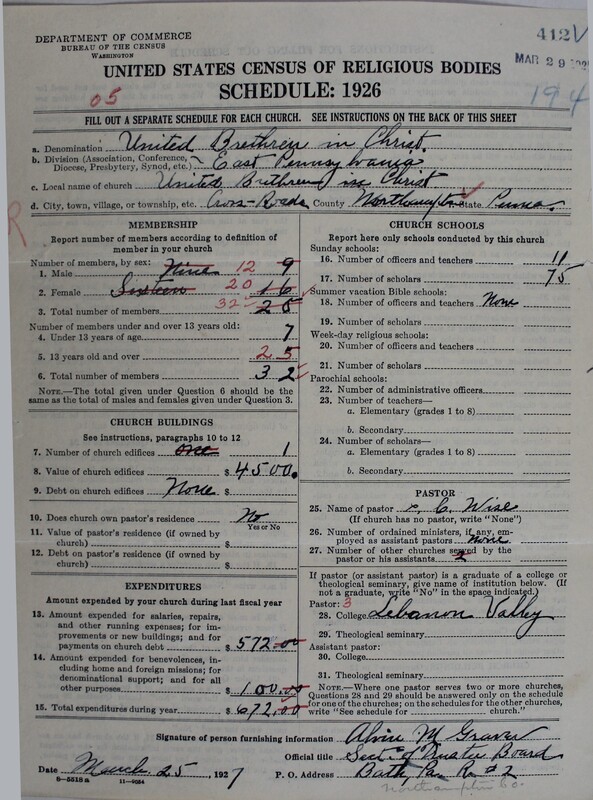 DEPARTMENT OF COMMERCE
BUREAU OF THE CENSUS
WASHINGTON
412
MAR 29
194
UNITED STATES CENSUS OF RELIGIOUS BODIES
SCHEDULE: 1926
05
FILL OUT A SEPARATE SCHEDULE FOR EACH CHURCH. SEE INSTRUCTIONS ON THE BACK OF THIS SHEET
a. Denomination United Brethren in Christ.
b. Division (Association, Conference, Diocese, Presbytery, Synod, etc.) East Pennsylvania
c. Local name of church United Brethren in Christ
d. City, town, village, or township, etc. Cross-Roads County Northampton State Penna.
R
MEMBERSHIP
Report number of members according to definition of
member in your church
Number of members, by sex:
1. Male Nine 12 9
2. Female Sixteen 20 16
3. Total number of members 32 25
Number of members under and over 13 years old:
4. Under 13 years of age 7
5. 13 years old and over 25
6. Total number of members 32
NOTE.—The total given under Question 6 should be the
same as the total of males and females given under Question 3.
CHURCH BUILDINGS
See instructions, paragraphs 10 to 12
7. Number of church edifices one 1
8. Value of church edifices $ 4500.
9. Debt on church edifices None $
10. Does church own pastor's residence No
Yes or No
11. Value of pastor's residence (if owned by
church) $
12. Debt on pastor's residence (if owned by
church) $
EXPENDITURES
Amount expended by your church during last fiscal year
13. Amount expended for salaries, repairs,
and other running expenses; for im-
provements or new buildings; and for
payments on church debt $ 572.00
14. Amount expended for benevolences, in-
cluding home and foreign missions; for
denominational support; and for all
other purposes $ 100.00
15. Total expenditures during year $ 672.00
CHURCH SCHOOLS
Report here only schools conducted by this church
Sunday schools:
16. Number of officers and teachers 11
17. Number of scholars 75
Summer vacation Bible schools:
18. Number of officers and teachers None
19. Number of scholars
Week-day religious schools:
20. Number of officers and teachers
21. Number of scholars
Parochial schools:
22. Number of administrative officers
23. Number of teachers—
a. Elementary (grades 1 to 8)
b. Secondary
24. Number of scholars—
a. Elementary (grades 1 to 8)
b. Secondary
PASTOR
25. Name of pastor C. Wise
(If church has no pastor, write "None")
26. Number of ordained ministers, if any, em-
ployed as assistant pastors None
27. Number of other churches served by the
pastor or his assistants 2
If pastor (or assistant pastor) is a graduate of a college or
theological seminary, give name of institution below. (If
not a graduate, write "No" in the space indicated.)
Pastor: 3
28. College Lebanon Valley
29. Theological seminary
Assistant pastor:
30. College
31. Theological seminary
NOTE.—Where one pastor serves two or more churches,
Questions 28 and 29 should be answered only on the schedule
for one of the churches; on the schedules for the other churches,
write "See schedule for church."
Signature of person furnishing information Alvin M Graver
Official title Sect. of Trustee Board
Date March 25, 1927 P. O. Address Bath Pa. R # 2
8—5518 a
Northampton Co.